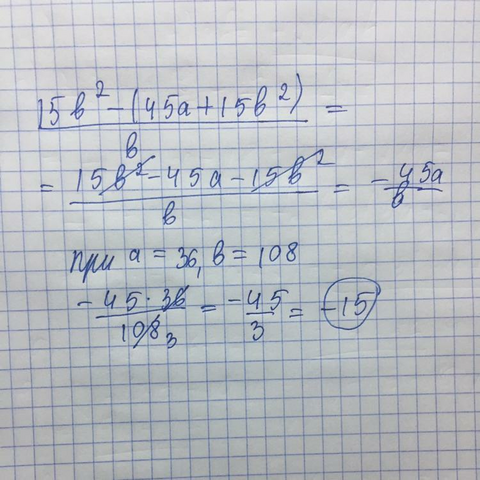 (15в² - (45а + 15в²)) / в =
= (15в² - 45а - 15в²) / в = -45а / в
при а = 36, в = 108
- (45 · 36) / 108 3 = -45 / 3 = -15